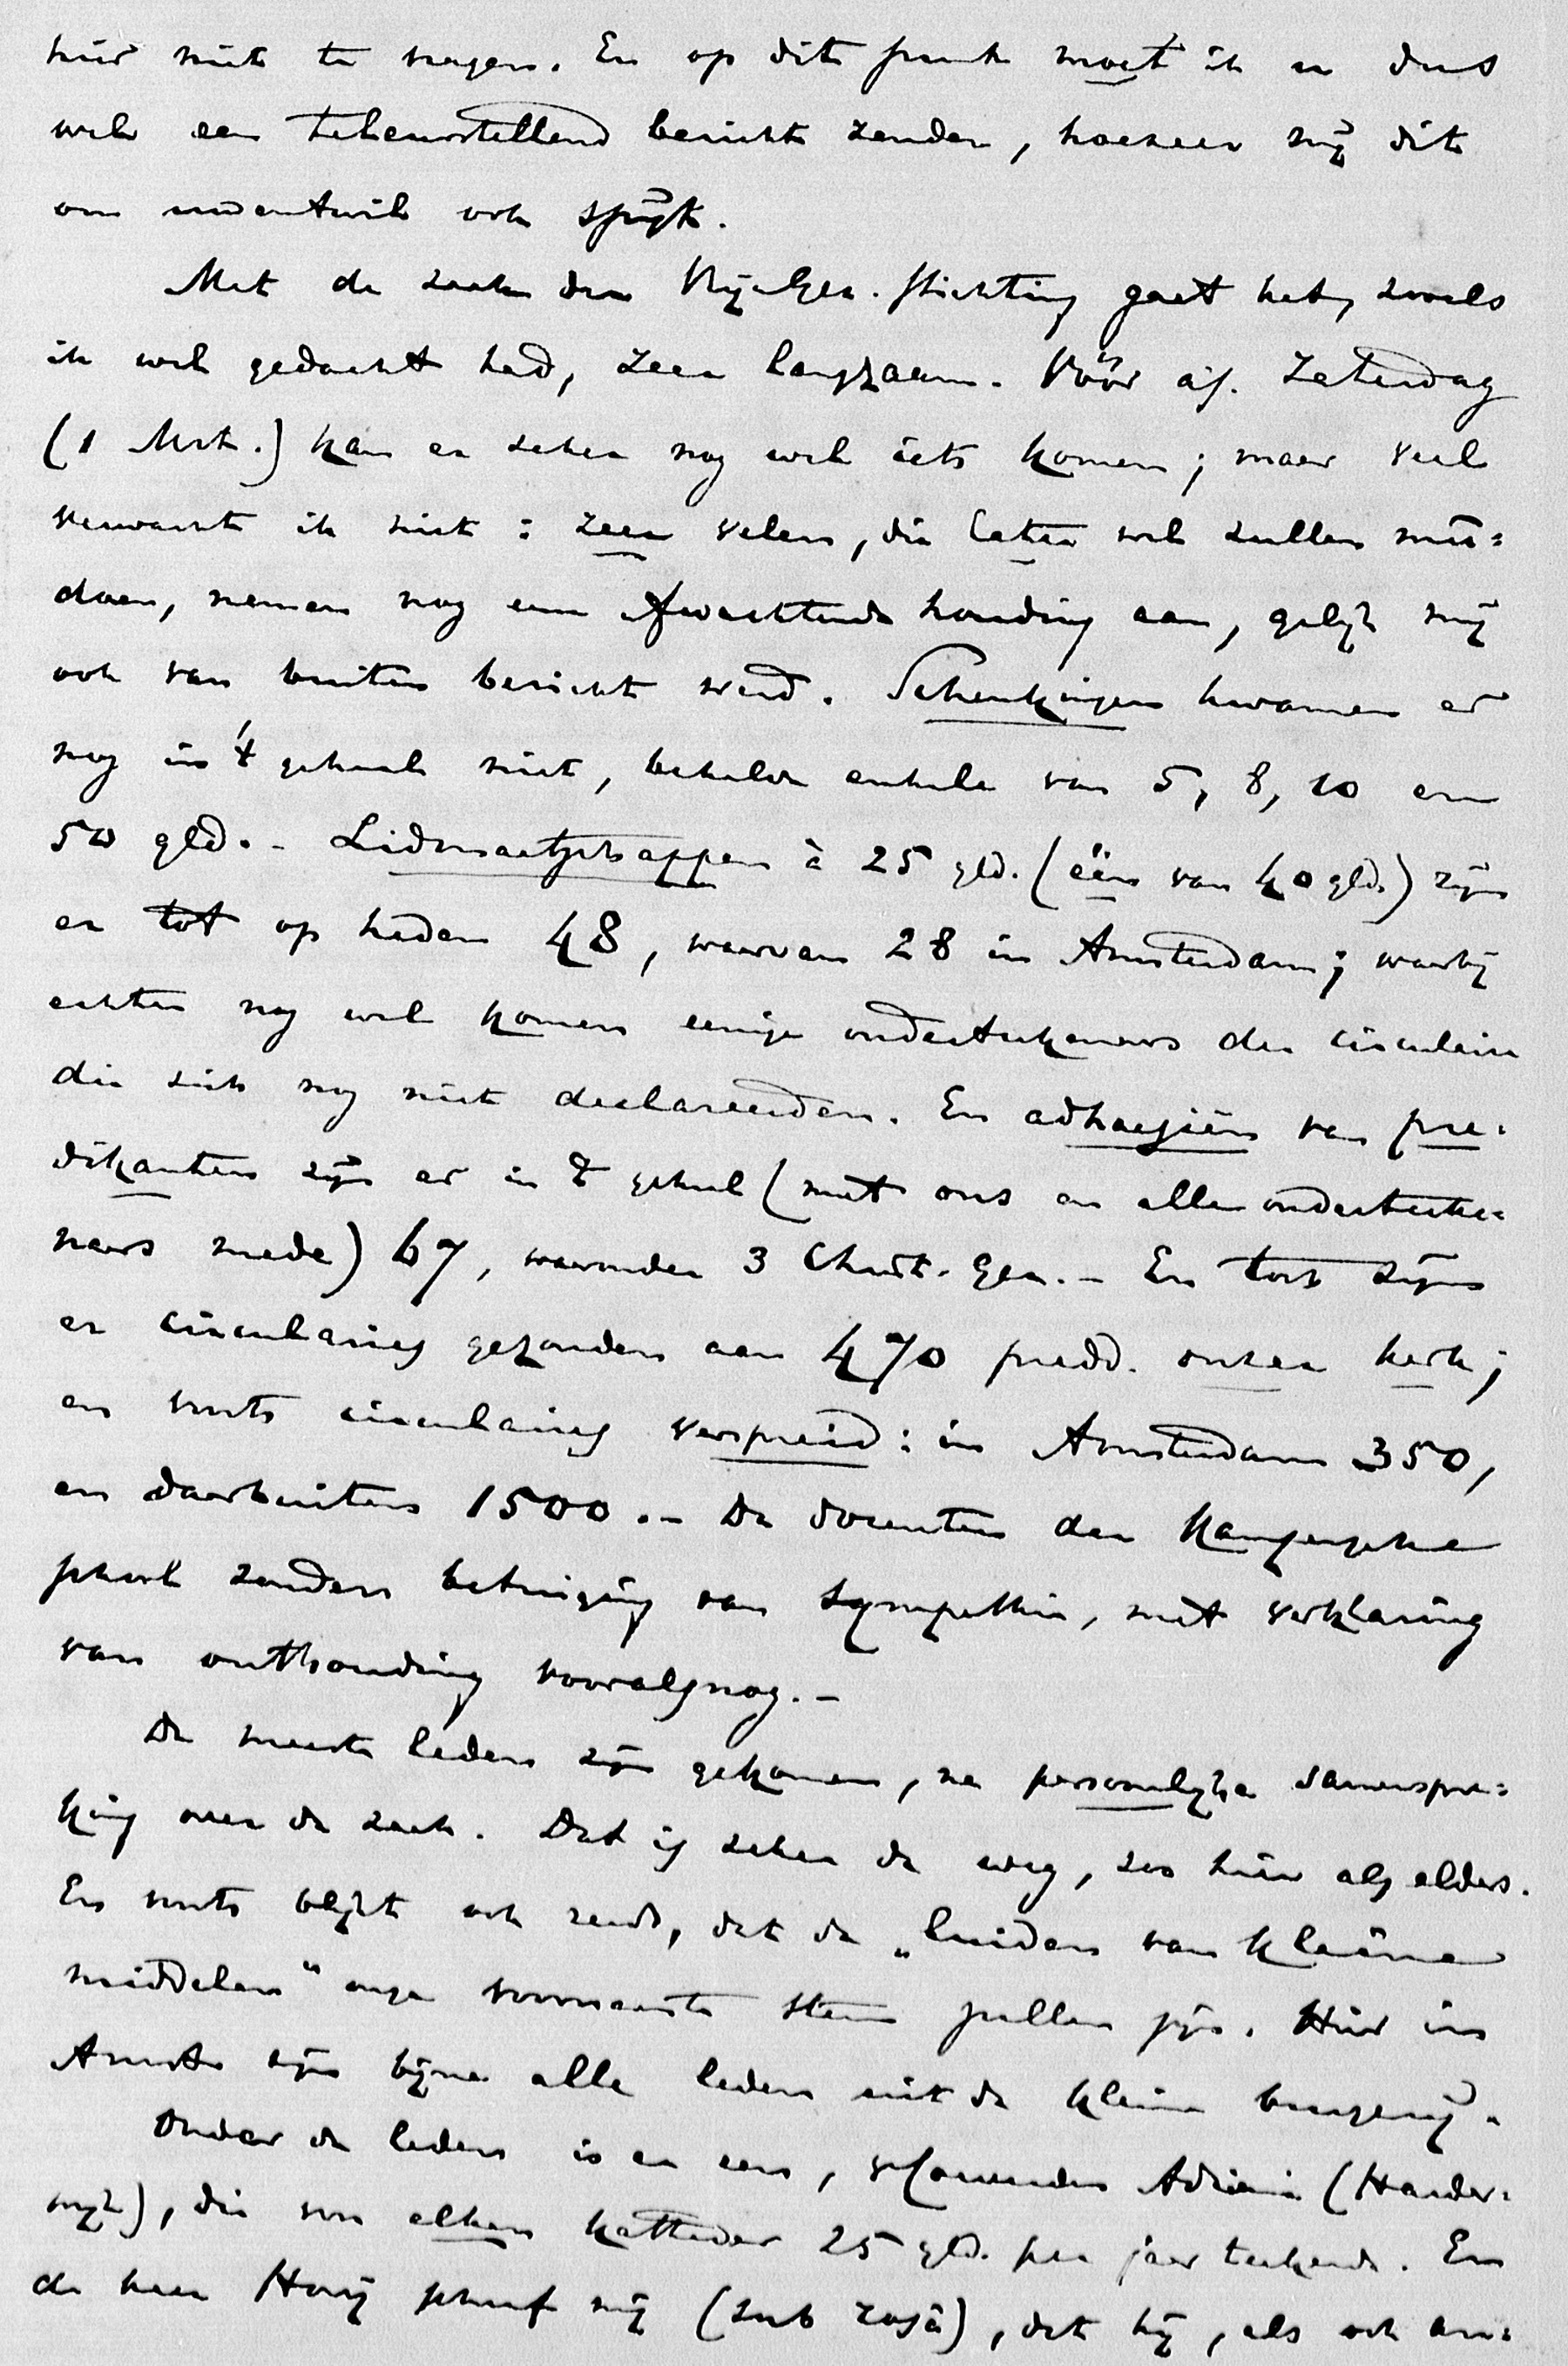 hier niet te vragen. En op dit punt moet ik u dus
wel een teleurstellend bericht zenden, hoezeer mij dit
om uwentwil ook spijt.
Met de zaak der Vrije Ger. Stichting gaat het, zooals
ik wel gedacht had, zeer langzaam. Vóór a.s. Zaterdag
(1 Mrt.) kan er zeker nog wel iets komen; maar veel
verwacht ik niet: zeer velen, die later wel zullen mee=
doen, nemen nog een afwachtende houding aan, gelijk mij
ook van buiten bericht werd. Schenkingen kwamen er
nog in 't geheel niet, behalve enkele van 5, 8, 10 en
50 gld. - Lidmaatschappen à 25 gld. (één van 40 gld.) zijn
er tot op heden 48, waarvan 28 in Amsterdam; waarbij
echter nog wel komen eenige onderteekenaars der circulaire
die zich nog niet declareerden. En adhaesiën van pre=
dikanten zijn er in 't geheel (met ons en alle onderteeke=
naars mede) 67, waaronder 3 Christ. Ger. - En toch zijn
er circulaires gezonden aan 470 predd. onzer kerk;
en voorts circulaires verspreid: in Amsterdam 350,
en daarbuiten 1500. - De docenten der Kamper
school zonden betuiging van sympathie, met verklaring
van onthouding vooralsnog. -
De meeste leden zijn gekomen, na persoonlijke samenspre=
king over de zaak. Dat is zeker de weg, zoo hier als elders.
En voorts blijkt ook reeds, dat de „luiden van kleine
middelen" onze voornaamste steun zullen zijn. Hier in
Amst. zijn bijna alle leden uit de kleine burgerij.
Onder de leden is er een, Adriani (Harder=
wijk), die voor elken katheder 25 gld. per jaar teekende. En
de heer Hovij schreef mij (sub rosâ), dat hij, als ook an=